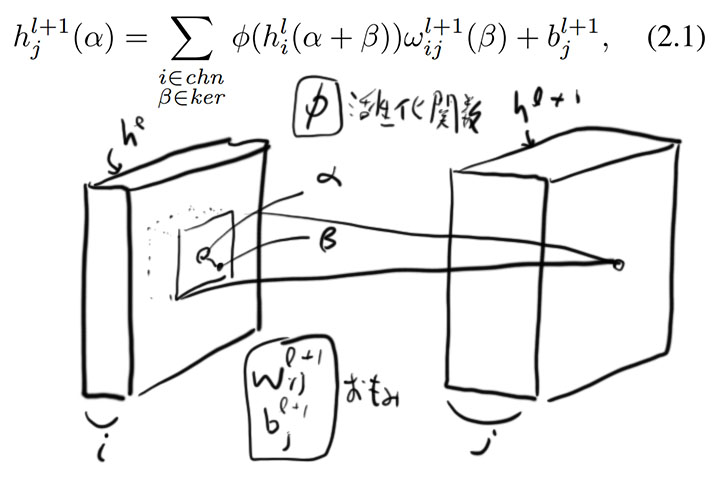 h_j^{l+1}(α) = ∑_{i∈chn β∈ker} ϕ(h_i^l(α + β))ω_{ij}^{l+1}(β) + b_j^{l+1}, (2.1)
ϕ 活性化関数
h^l
h^{l+1}
α
β
w_{ij}^{l+1}
b_j^{l+1}
おもみ
i
j